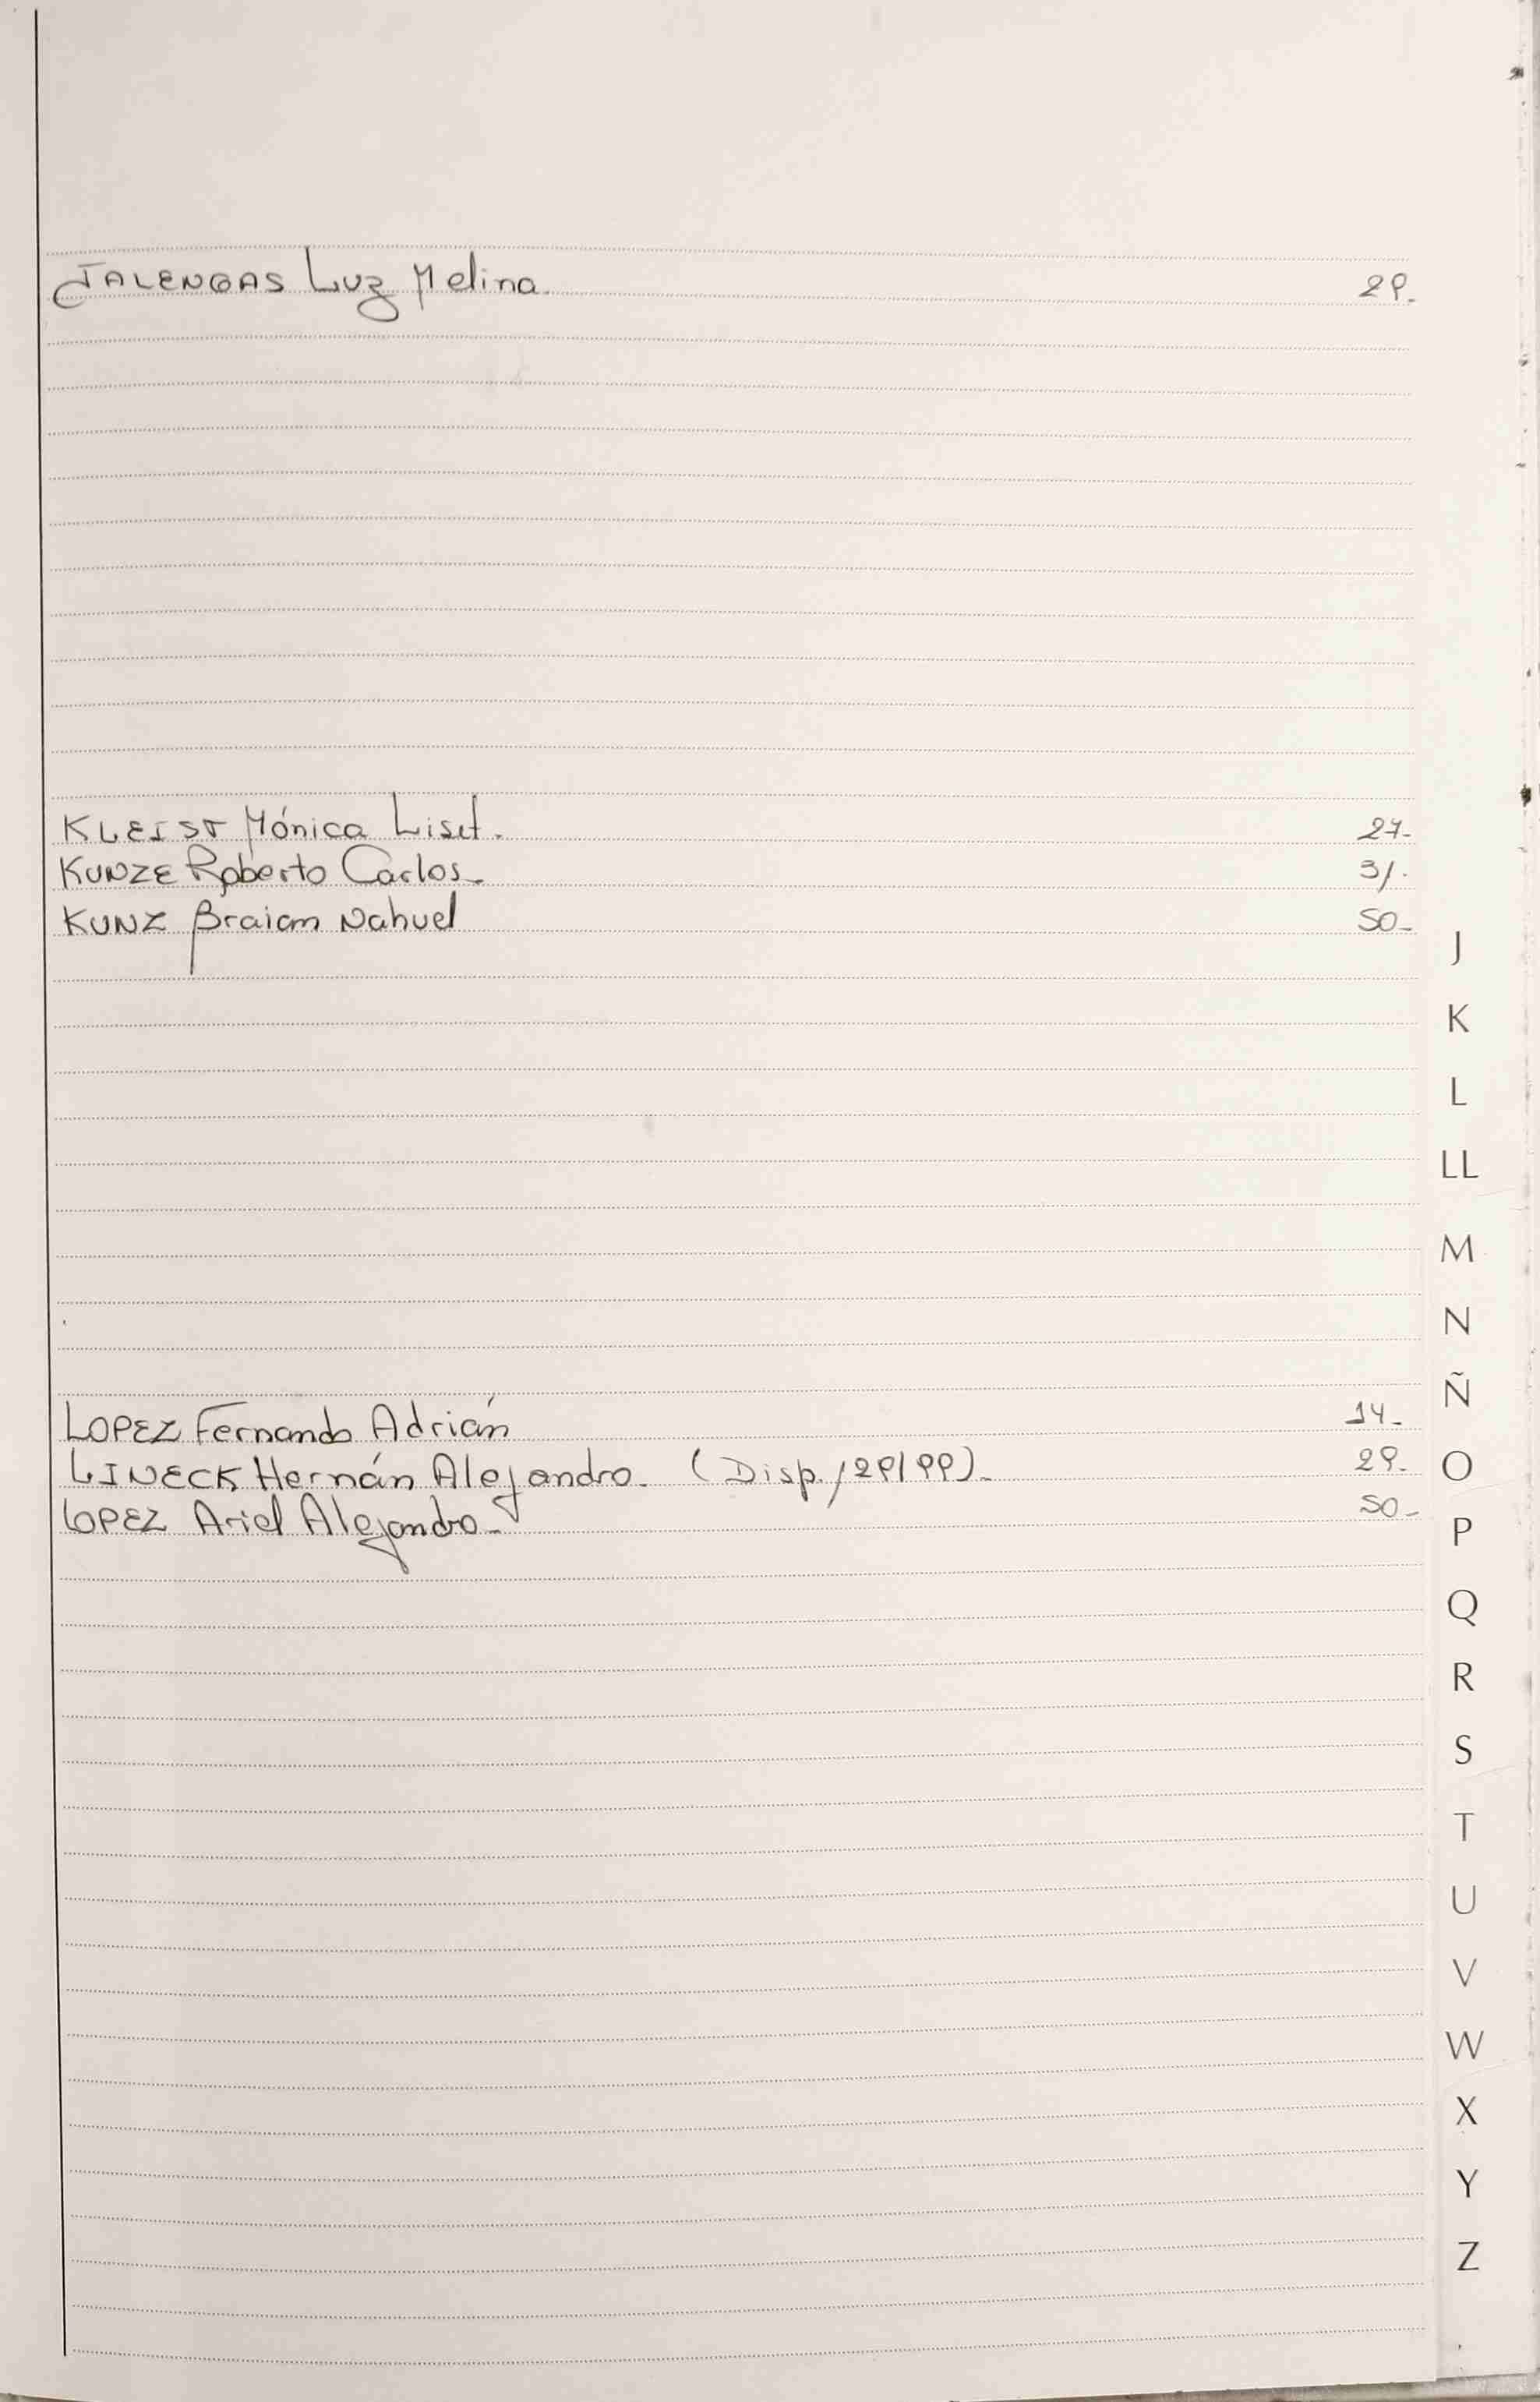 JALENGAS Luz Melina. 29.
KLEIST Mónica Liset. 27-
KUNZE Roberto Carlos- 31.
KUNZ Braian Nahuel 50-
J
K
L
LL
M
N
Ñ
LOPEZ Fernando Adrián 14-
LINECK Hernán Alejandro. (Disp. 129/99)- 29-
O
LOPEZ Ariel Alejandro- 50-
P
Q
R
S
T
U
V
W
X
Y
Z